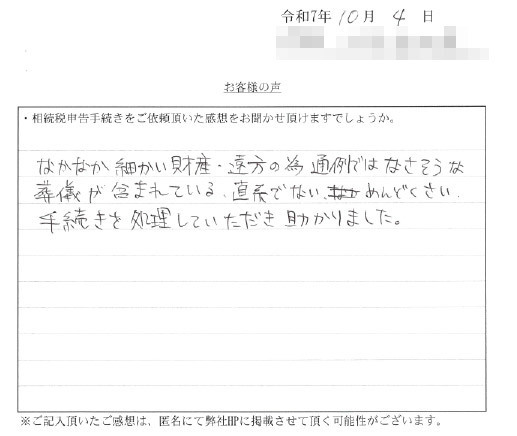 令和7年 10月 4日
お客様の声
・相続税申告手続きをご依頼頂いた感想をお聞かせ頂けますでしょうか。
なかなか細かい財産・遠方の為通例ではなさそうな
葬儀が含まれている、直系でない、めんどくさい、
手続きを処理していただき助かりました。
※ご記入頂いたご感想は、匿名にて弊社HPに掲載させて頂く可能性がございます。